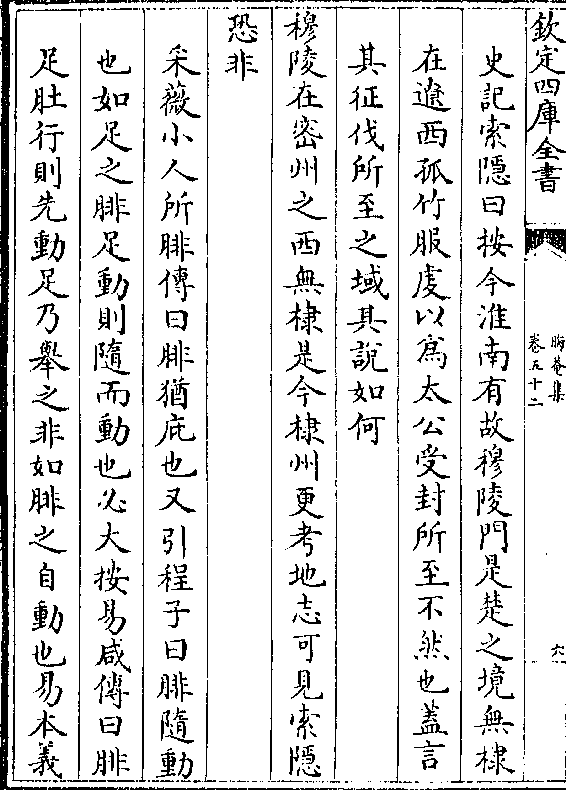 欽定四庫全書
晦菴集
卷五十二
六
史記索隠曰按今淮南有故穆陵門是楚之境無棣
在遼西孤竹服䖍以爲太公受封所至不然也葢言
其征伐所至之域其説如何
穆陵在密州之西無棣是今棣州更考地志可見索隠
恐非
采薇小人所腓傳曰腓猶庇也又引程子曰腓隨動
也如足之腓足動則隨而動也必大按易咸傳曰腓
足肚行則先動足乃舉之非如腓之自動也易本義